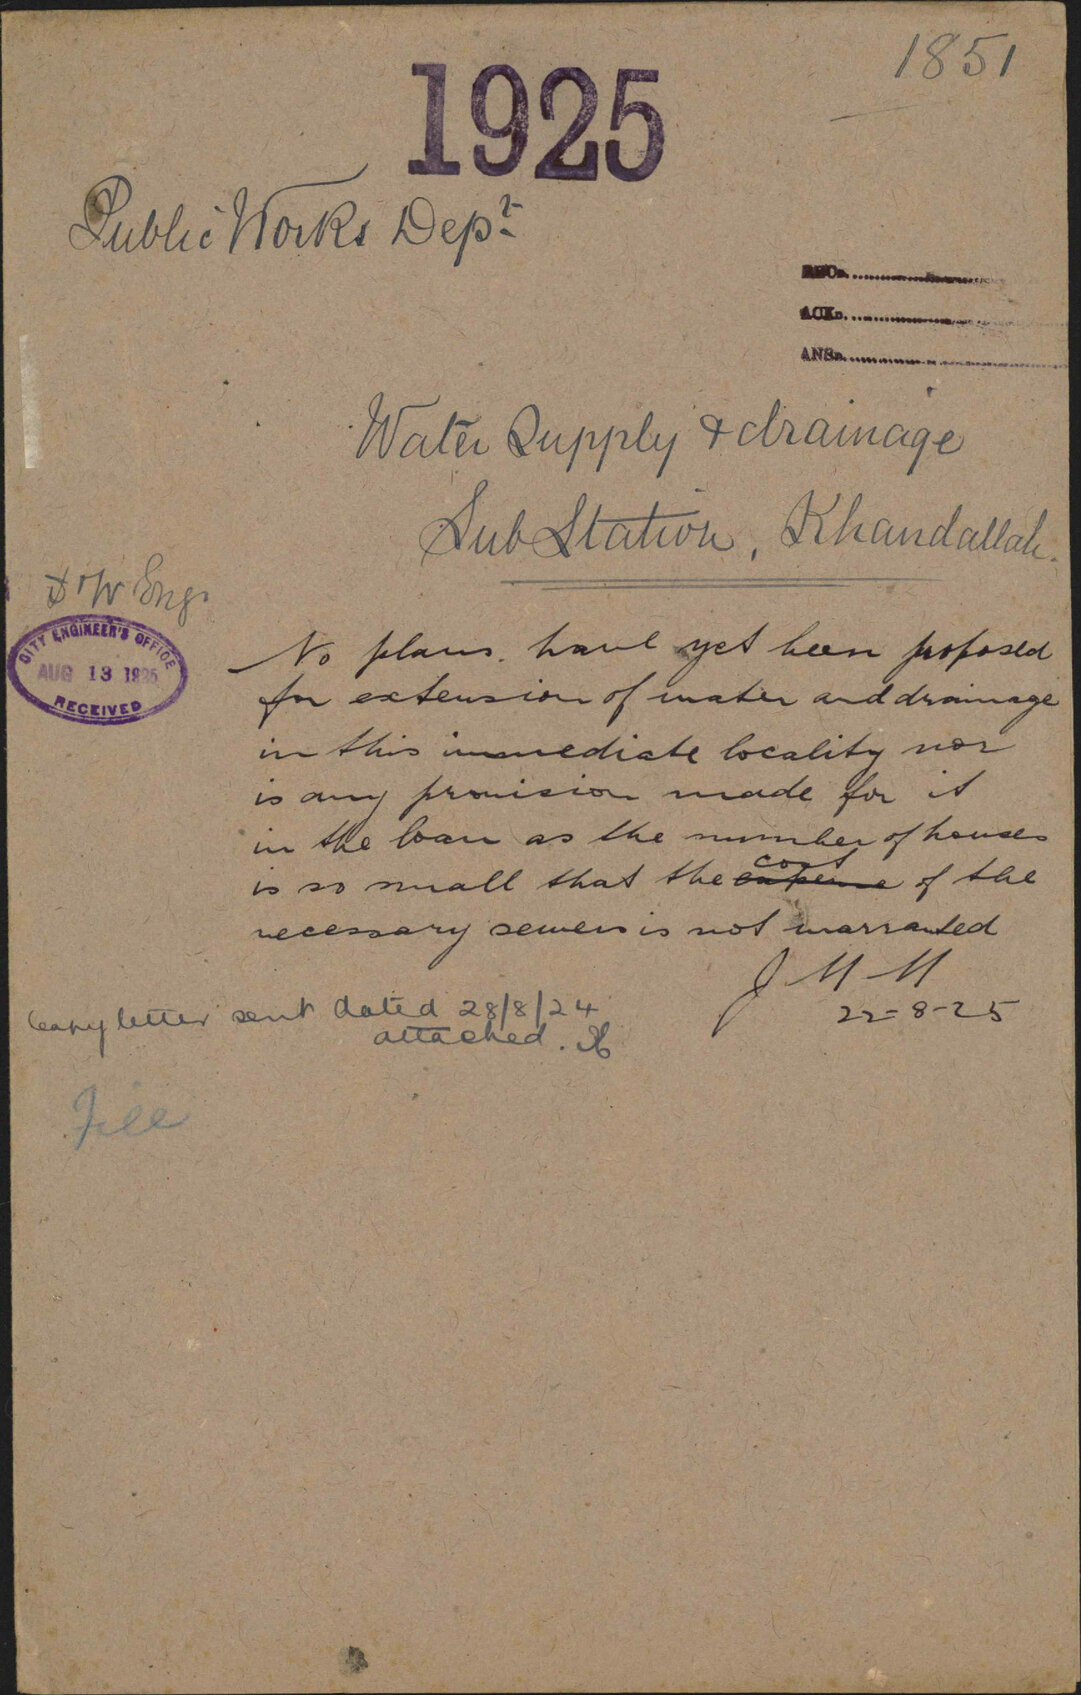 1851
1925
Public Works Dept.
REC
ACK
ANS
Water Supply & drainage
Sub Station, Khandallah.
D & W Eng.
CITY ENGINEER'S OFFICE
AUG 13 1925
RECEIVED
No plans have yet been proposed
for extension of water and drainage
in this immediate locality nor
is any provision made for it
in the loan as the number of houses
is so small that the expense cost of the
necessary sewers is not warranted
22-8-25
Copy letter sent dated 28/8/24
attached.
File